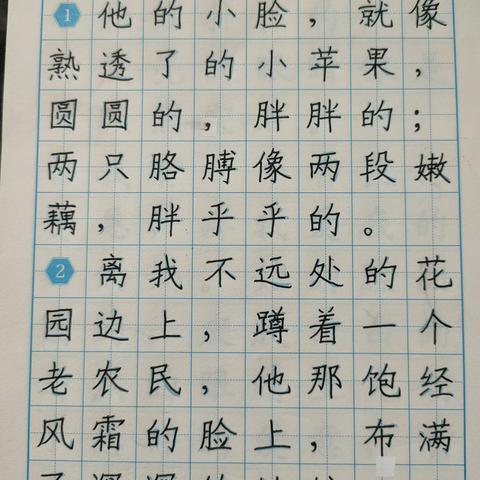 1 他的小脸，就像
熟透了的小苹果，
圆圆的，胖胖的；
两只胳膊像两段嫩
藕，胖乎乎的。
2 离我不远处的花
园边上，蹲着一个
老农民，他那饱经
风霜的脸上，布满